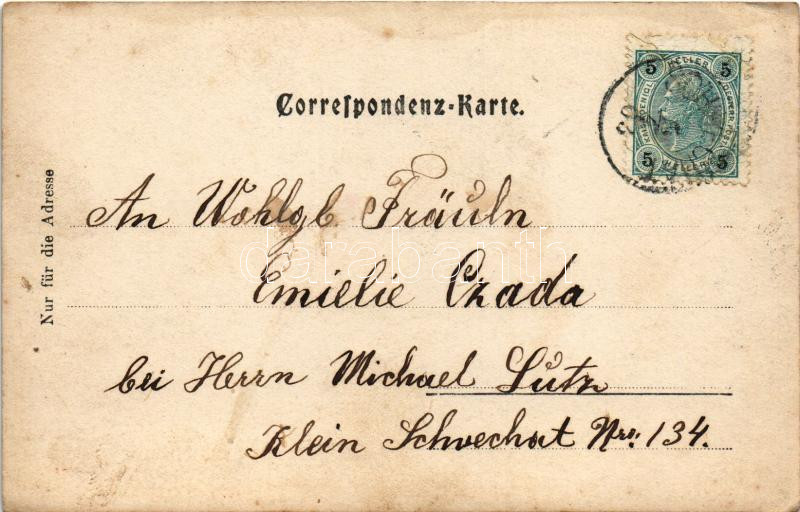 Correspondenz-Karte.
Nur für die Adresse
5 HELLER 5
5 HELLER 5
An Wohlgb. Fräuln
Emielie Czada
bei Herrn Michael Lutz
Klein Schwechat Nro: 134.
darabanth